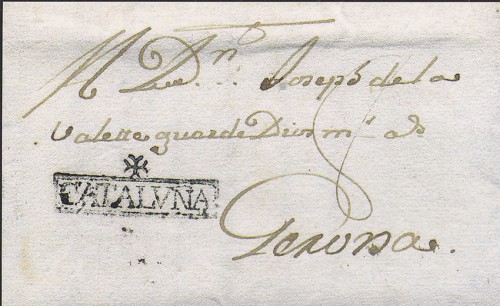 A Dn. Joseph de la
Valette guarde Dios ms. as.
CATALUÑA
Gerona.